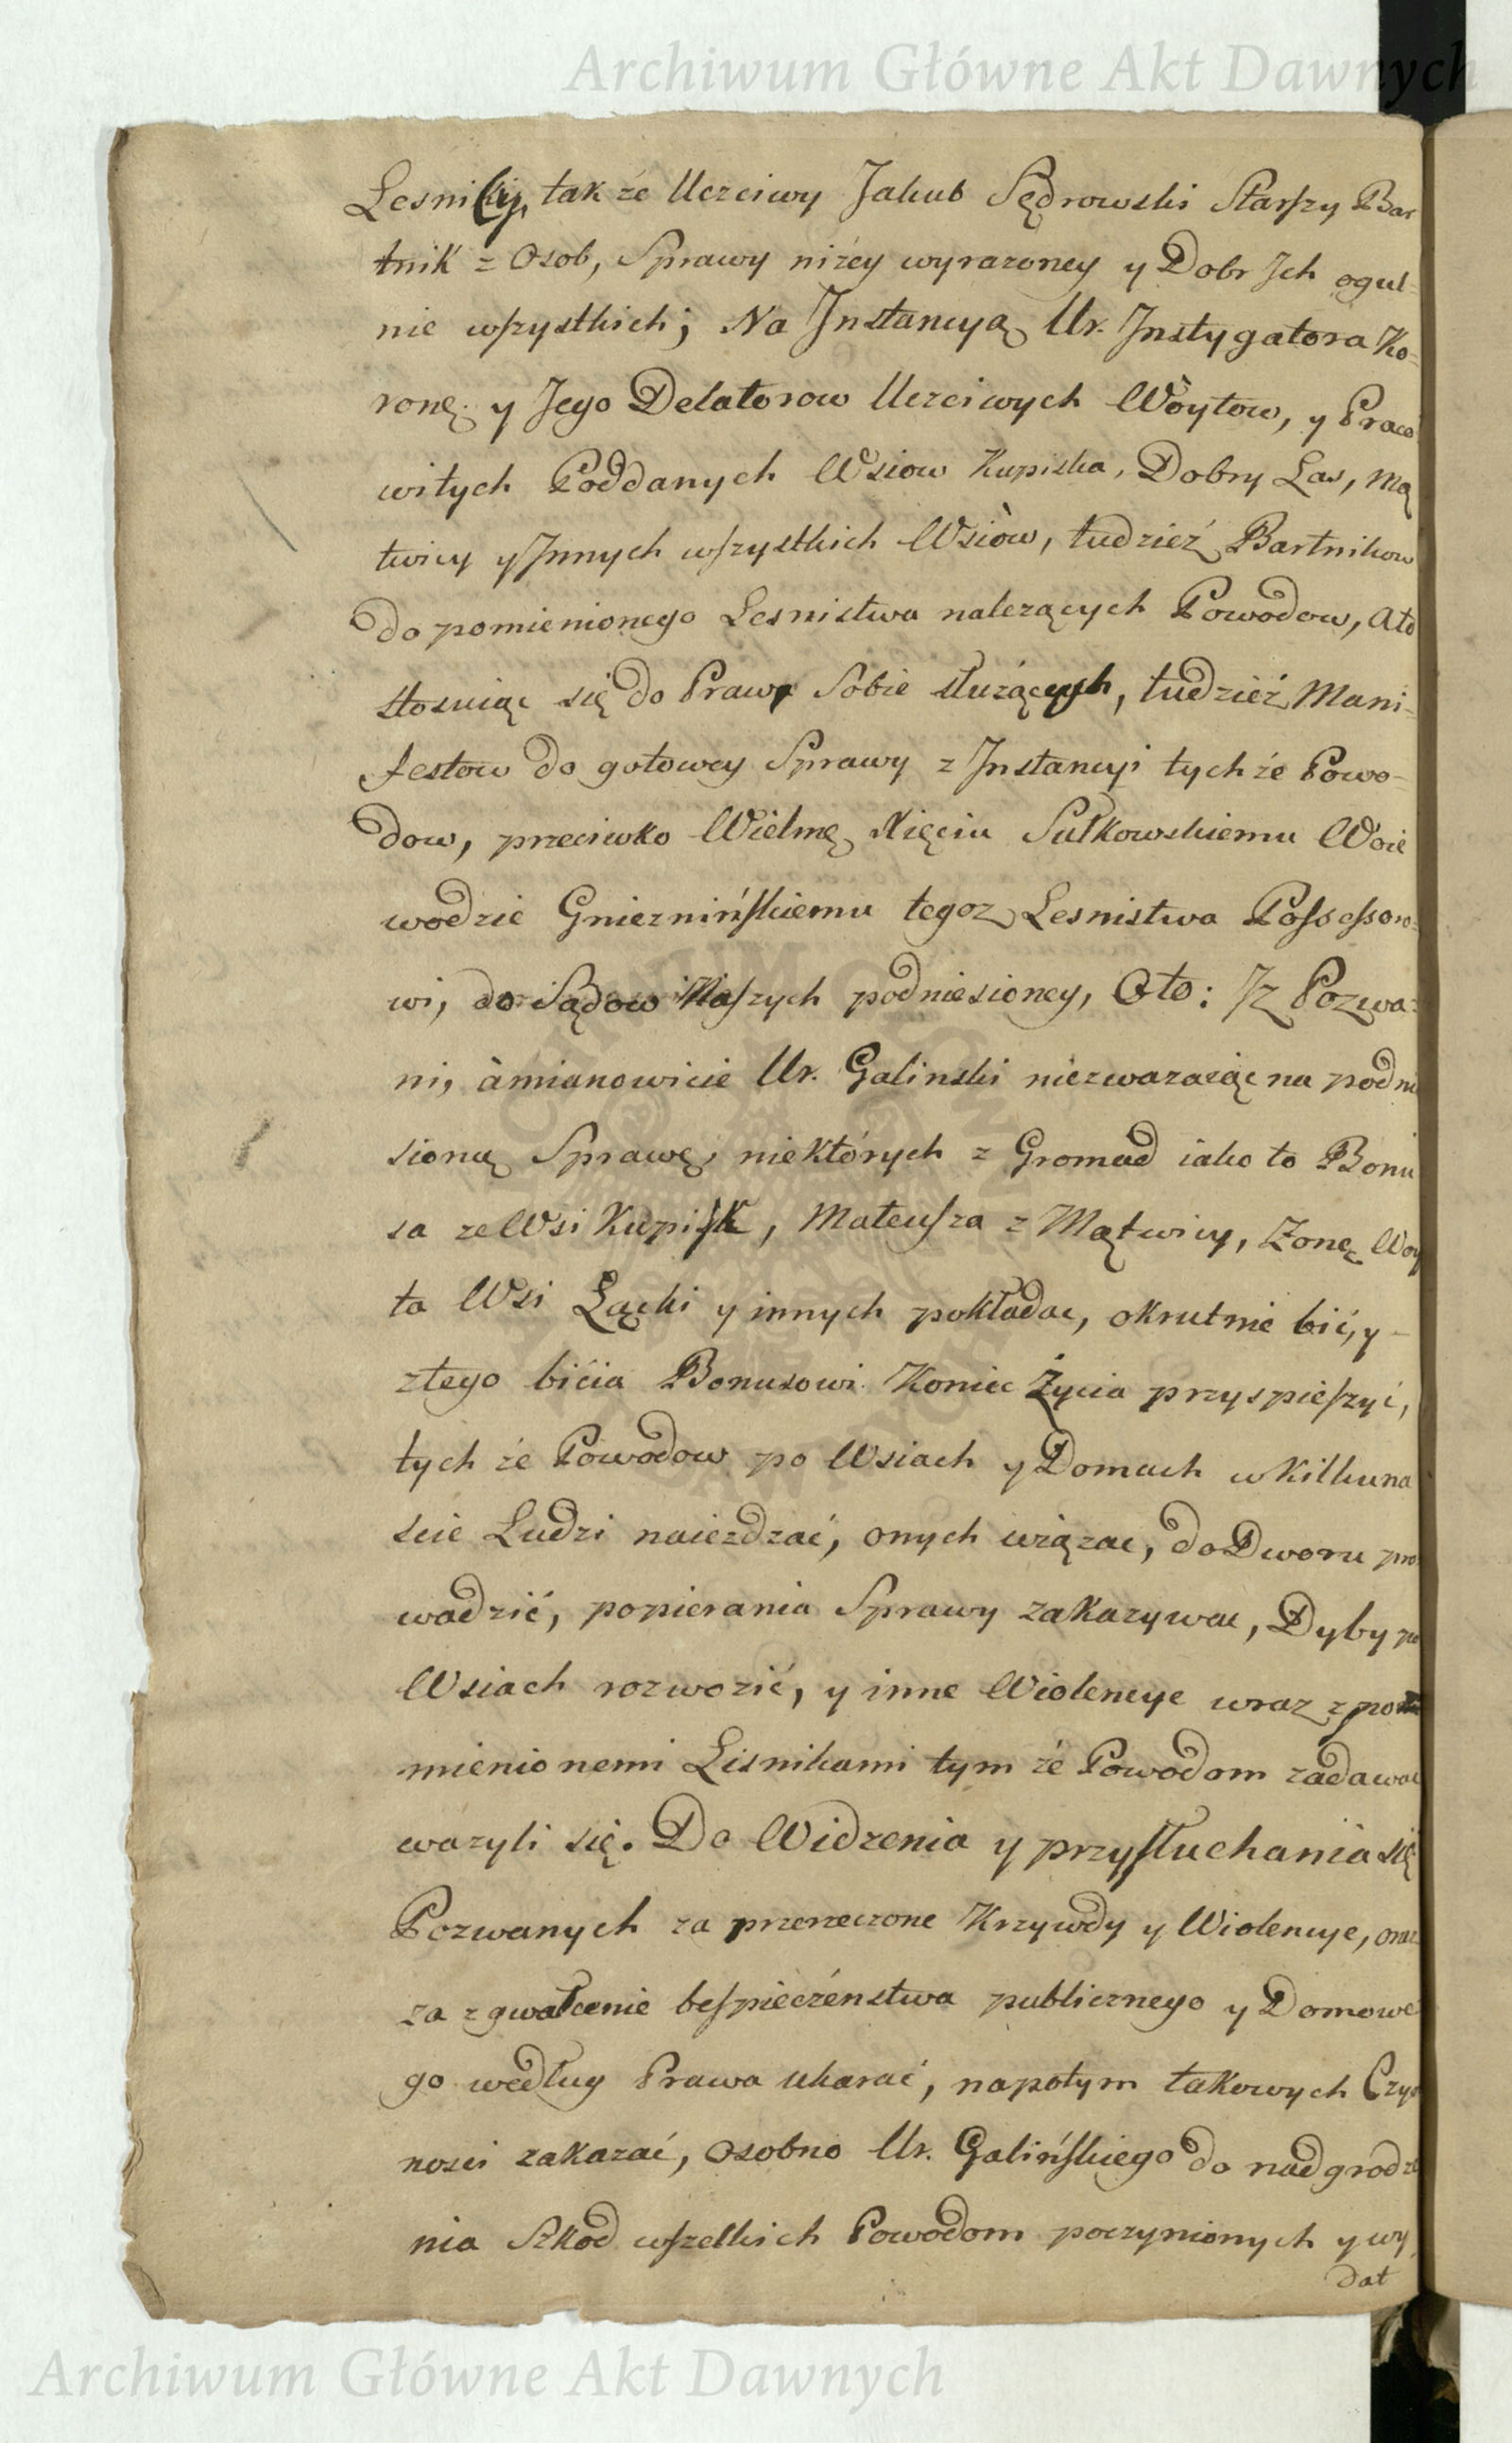 Archiwum Główne Akt Dawnych
Lesniccy, tak że Uczciwy Jakub Sędrowski Starszy Bar
tnik z Osob, Sprawy niżey wyrazoney y Dobr Jch ogul-
nie wszystkich; Na Jnstancyą Ur. Jnstygatora Ko-
ronę. y Jego Delatorow Uczciwych Woytow, y Praco
witych Poddanych Wsiow Kupiska, Dobry Las, Mą
twicy y Jnnych wszystkich Wsiòw, tudzież Bartnikow
do pomienionego Lesnistwa nalezących Powodow, Ato
stosuiąc się do Praw Sobie służących, tudzież Mani-
festow do gotowey Sprawy z Jnstancyi tych że Powo-
dow, przeciwko Wielmę Xięciu Sułkowskiemu Woie
wodzie Gnieznińskiemu tegoz Lesnistwa Possessoro-
wi, do Sądow Naszych podniesioney, Oto: Jz Pozwa-
ni, àmianowicie Ur. Galinski niezwazaiąc na podnie
sioną Sprawę, niektórych z Gromad iako to Bonu
sa ze Wsi Kupisk, Mateusza z Mątwicy, Zonę Woy
ta Wsi Łącki y innych pokładac, okrutnie bić, y -
ztego bićia Bonusowi Koniec Życia przyspieszyć,
tych że Powodow po Wsiach y Domach w Kilkuna
scie Ludzi naiezdzać, onych wiązac, do Dworu pro
wadzić, popierania Sprawy zakazywac, Dyby po
Wsiach rozwozić, y inne Wiolencye wraz z po
mienionemi Lisnikami tym że Powodom zadawac
wazyli się. Do Widzenia y przysłuchania się
Pozwanych za przerzeczone Krzywdy y Wiolencye, oraz
za zgwałcenie bespieczeństwa publicznego y Domowe
go według Prawa ukarać, napotym takowych Czyn
nosci zakazać, osobno Ur. Galińskiego do nadgrodze
nia Szkod wszelkich Powodom poczynionych y wy
dat
Archiwum Główne Akt Dawnych